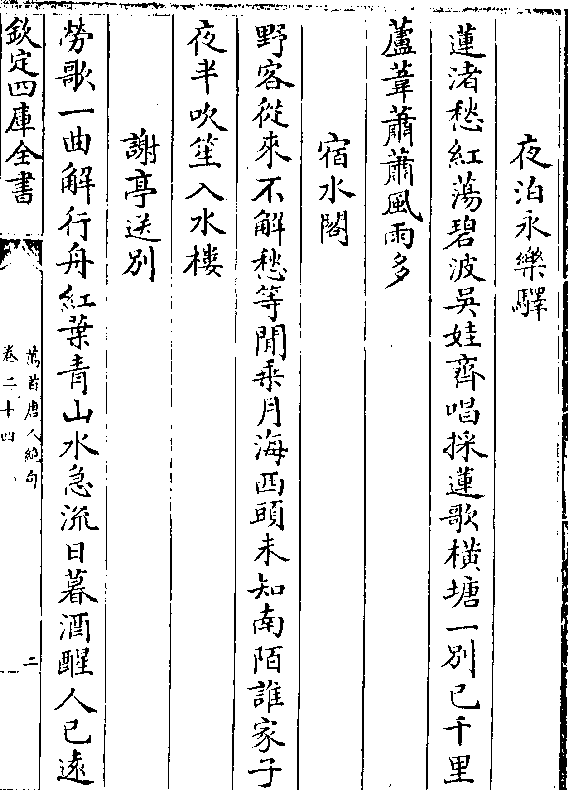 夜泊永樂驛
蓮渚愁紅蕩碧波吳娃齊唱採蓮歌橫塘一別已千里
蘆葦蕭蕭風雨多
宿水閣
野客從來不解愁等閒乗月海西頭未知南陌誰家子
夜半吹笙入水樓
謝亭送别
勞歌一曲解行舟紅葉青山水急流日暮酒醒人已遠
欽定四庫全書
萬首唐人絶句
卷二十四
二